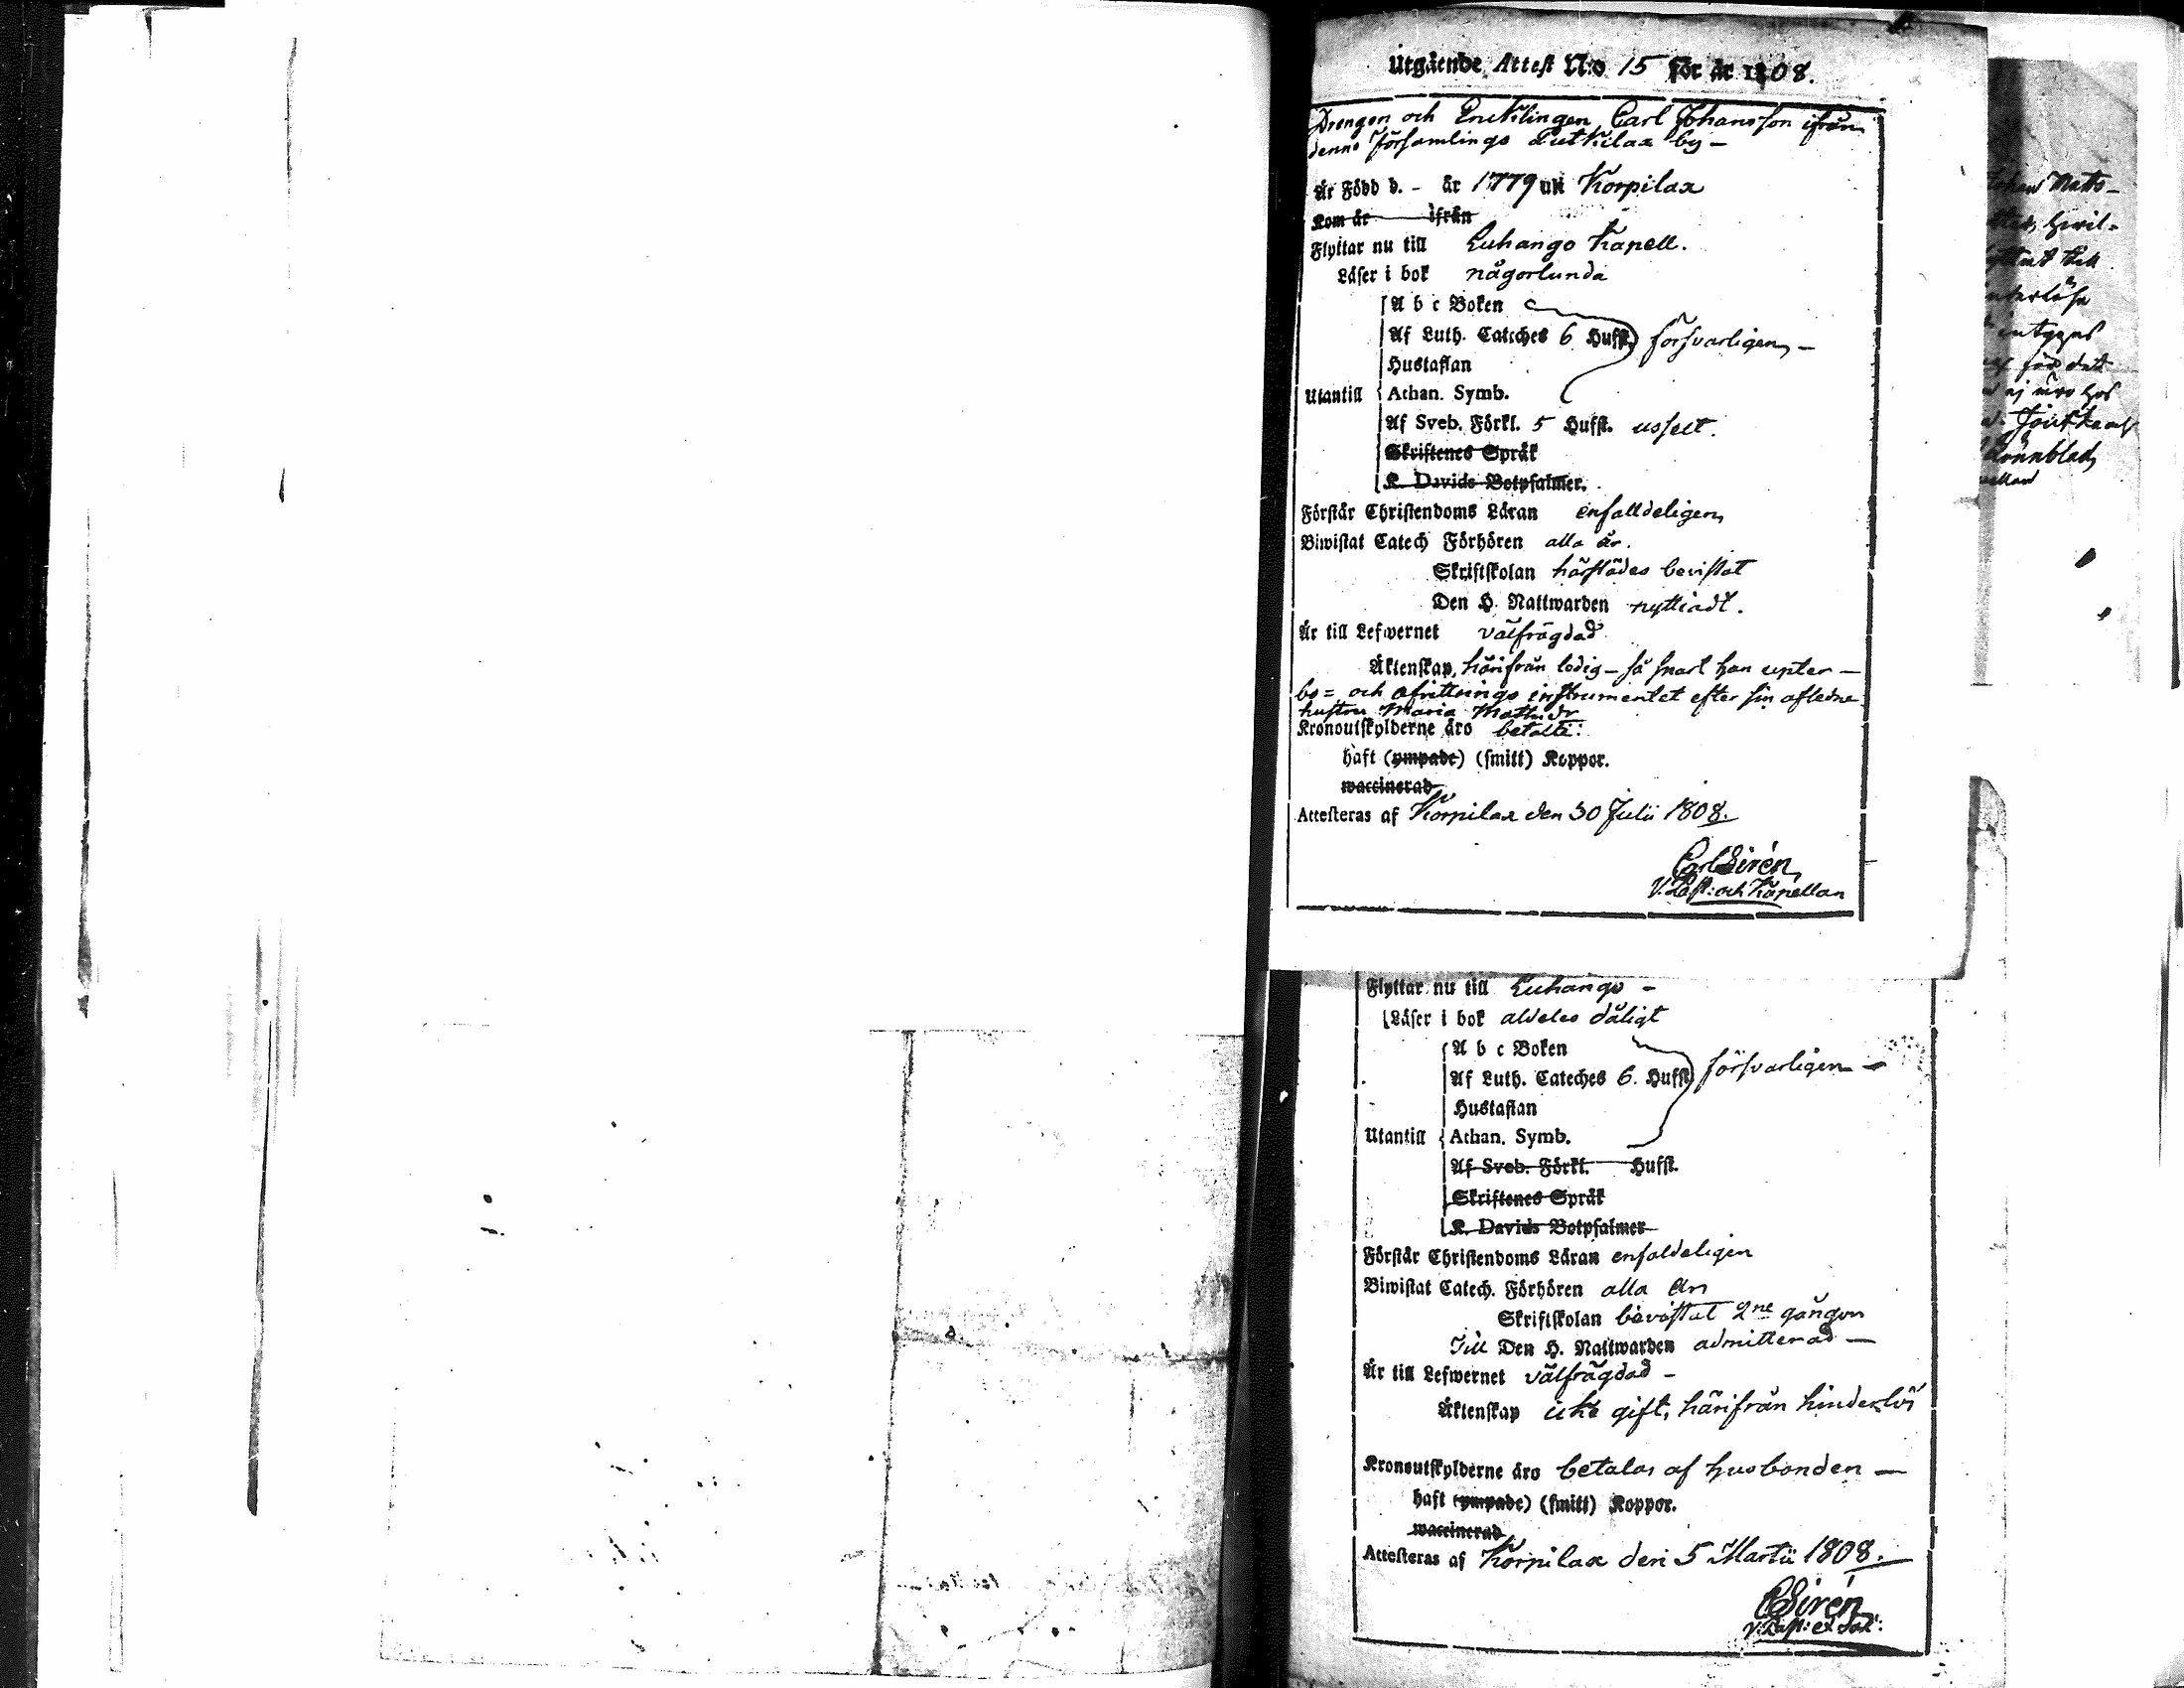 Utgående Attest N:o 15 för år 1808.
Drengen och Enklingen Carl Johansson ifrån
denne Församlings Putkilax by –
Är Född d. – år 1779 uti Korpilax
Kom år ifrån
Flyttar nu till Luhango Kapell.
Läser i bok någorlunda
A b c Boken
Af Luth. Catches 6 Hufst. försvarligen –
Hustaflan
Utantill Athan. Symb.
Af Sveb. Förkl. 5 Hufst. usselt.
Skriftenes Språk
K. Davids Botpsalmer.
Förstår Christendoms Läran enfalldeligen
Biwistat Catech Förhören alla år.
Skriftskolan härstädes bevistat
Den H. Nattwarden nyttiadt.
Är till Lefwernet välfrägdad
Äktenskap, härifrån ledig – så snart han upter –
bo = och afvittrings instrumentet efter sin afledne
hustru Maria Mattsdr
Kronoutskylderne äro betalte:
haft (ympade) (smitt) Koppor.
waccinerad
Attesteras af Korpilax den 30 Julii 1808.
Carl Sirén
V. Past: och Kapellan
Johan Matts-
hwil-
intygas
för det
ej hos
Rönnblad
Flyttar nu till Luhango –
Läser i bok aldeles dåligt
A b c Boken
Af Luth. Cateches 6. Hufst försvarligen –
Hustaflan
Utantill Athan. Symb.
Af Sveb. Förkl. Hufst.
Skriftenes Språk
K. Davids Botpsalmer
Förstår Christendoms Läran enfaldeligen
Biwistat Catech. Förhören alla år
Skriftskolan bevistat 2ne gångor
Till Den H. Nattwarden admitterad –
Är till Lefwernet välfrägdad –
Äktenskap icke gift, härifrån hinderlös
Kronoutskylderne äro betalas af husbonden –
haft (ympade) (smitt) Koppor.
waccinerad
Attesteras af Korpilax den 5 Martii 1808.
C Sirén
V. Past: et Sac: